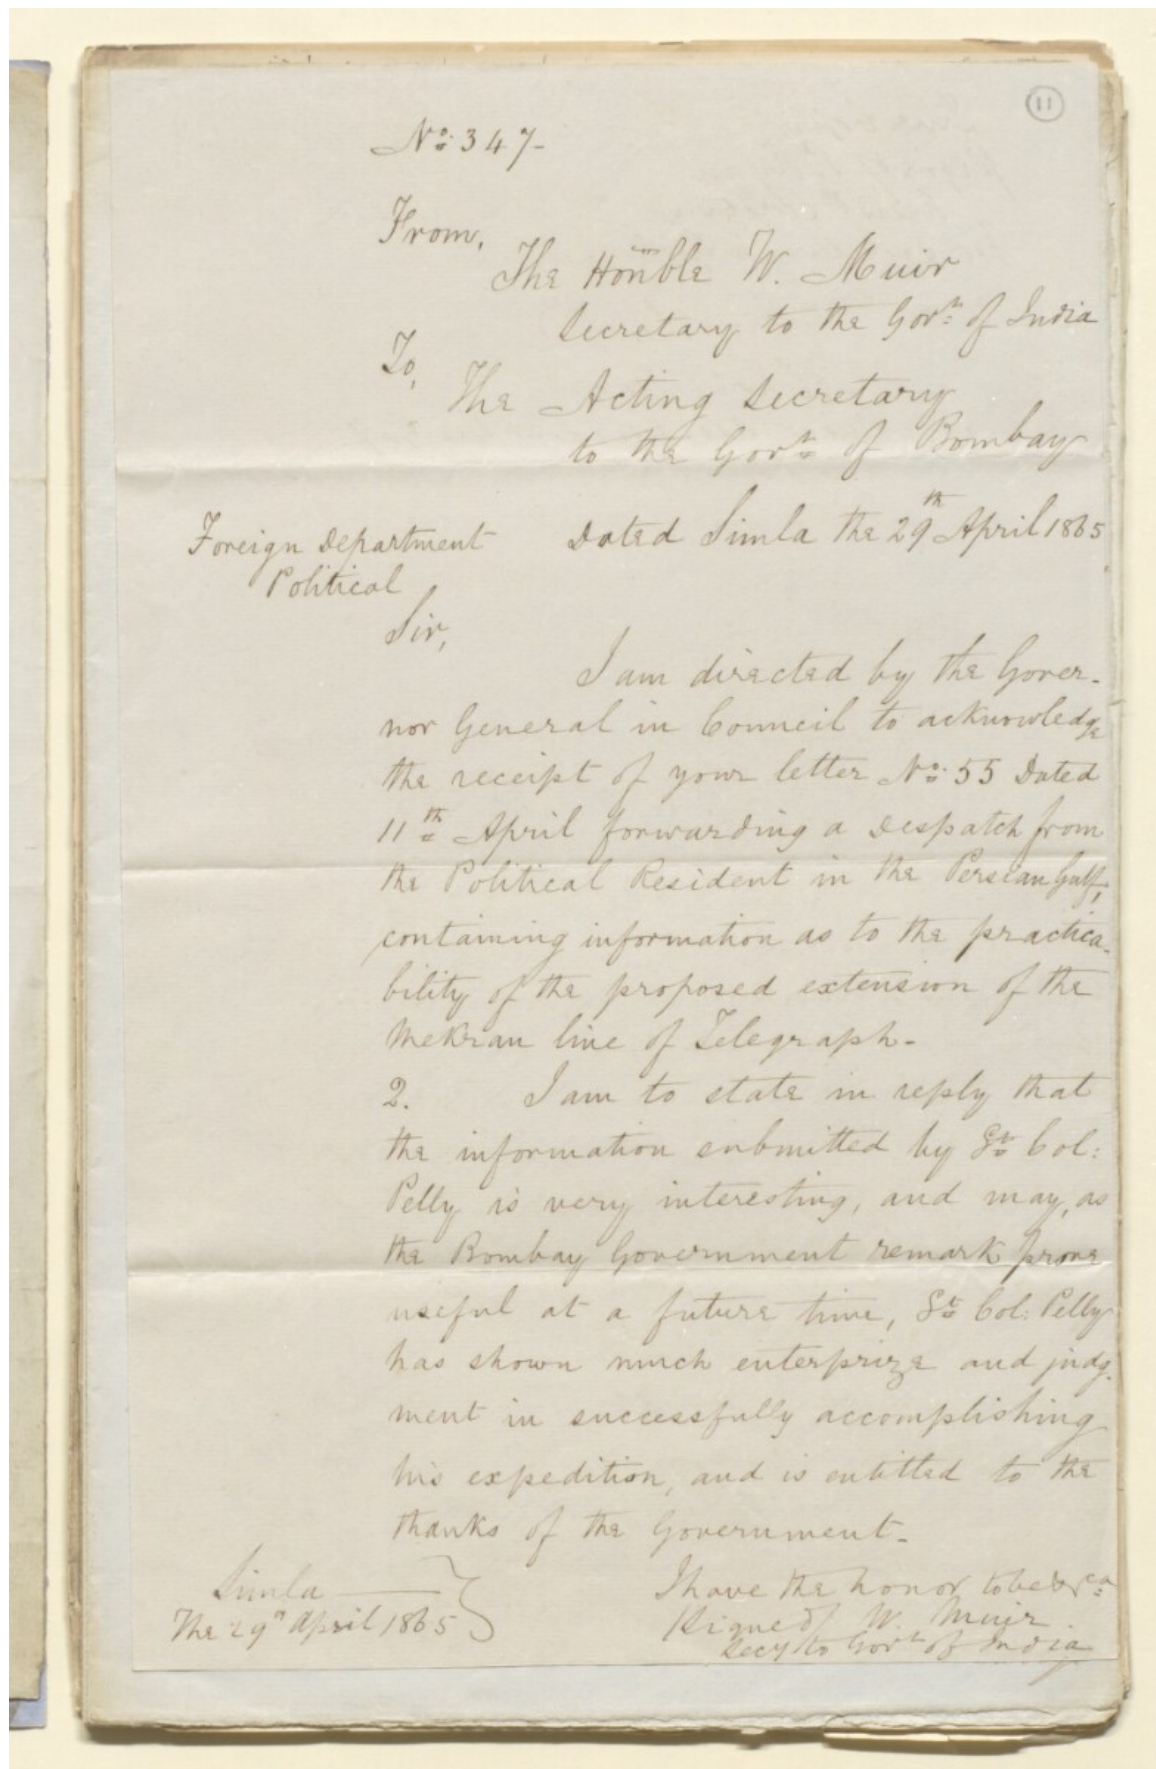 11
No. 347-
From,
The Honble W. Muir
Secretary to the Govt. of India
To,
The Acting Secretary
to the Govt. of Bombay
Foreign Department Dated Simla the 29th April 1865
Political
Sir,
I am directed by the Gover-
nor General in Council to acknowledge
the receipt of your letter No. 55 Dated
11th April forwarding a Despatch from
the Political Resident in the Persian Gulf,
containing information as to the practica-
bility of the proposed extension of the
Mekran line of Telegraph-
2. I am to state in reply that
the information submitted by Lt. Col:
Pelly is very interesting, and may, as
the Bombay Government remark prove
useful at a future time, Lt. Col: Pelly
has shown much enterprize and judg-
ment in successfully accomplishing
his expedition, and is entitled to the
thanks of the Government-
Simla I have the honor to be &ca
The 29th April 1865 Signed/ W. Muir
Secy to Govt of India